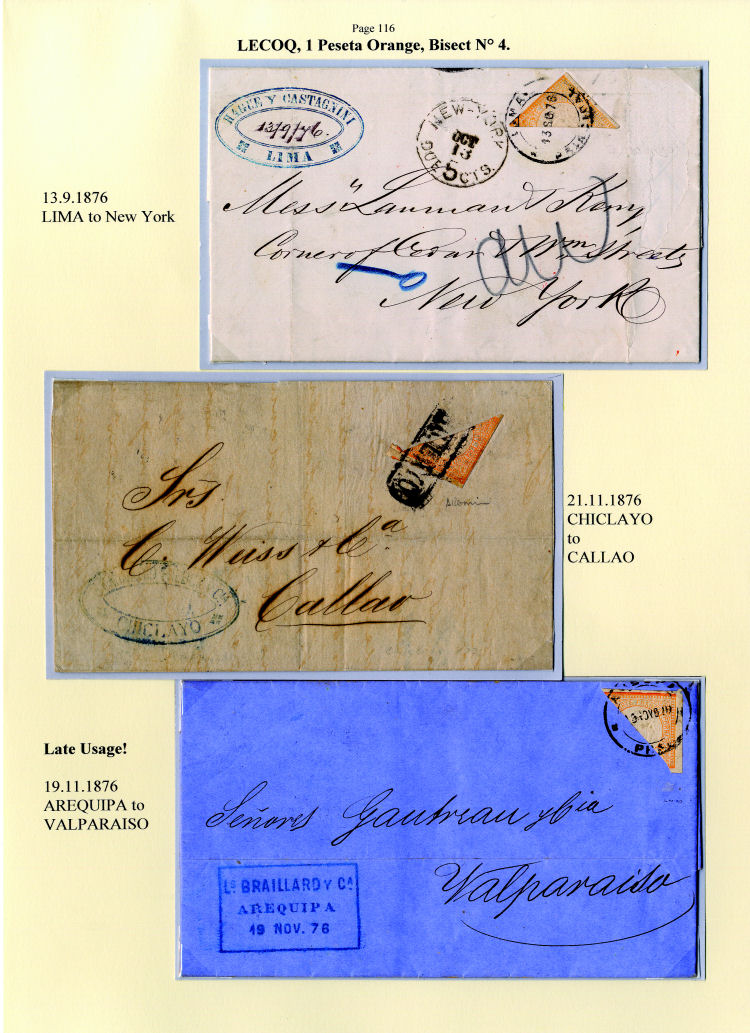 Page 116
LECOQ, 1 Peseta Orange, Bisect N° 4.
Y CASTAGNINI
13/9/76.
LIMA
NEW-YORK
OCT
13
5 CTS.
13 SE 76
13.9.1876
LIMA to New York
Mess
Corner of Cedar & Wm Streets
New York
Srs.
C. Weiss & Ca.
Callao
CHICLAYO
21.11.1876
CHICLAYO
to
CALLAO
Late Usage!
19.11.1876
AREQUIPA to
VALPARAISO
Señores Gautreau y Cia
Valparaiso
Ls BRAILLARD Y Ca
AREQUIPA
19 NOV. 76